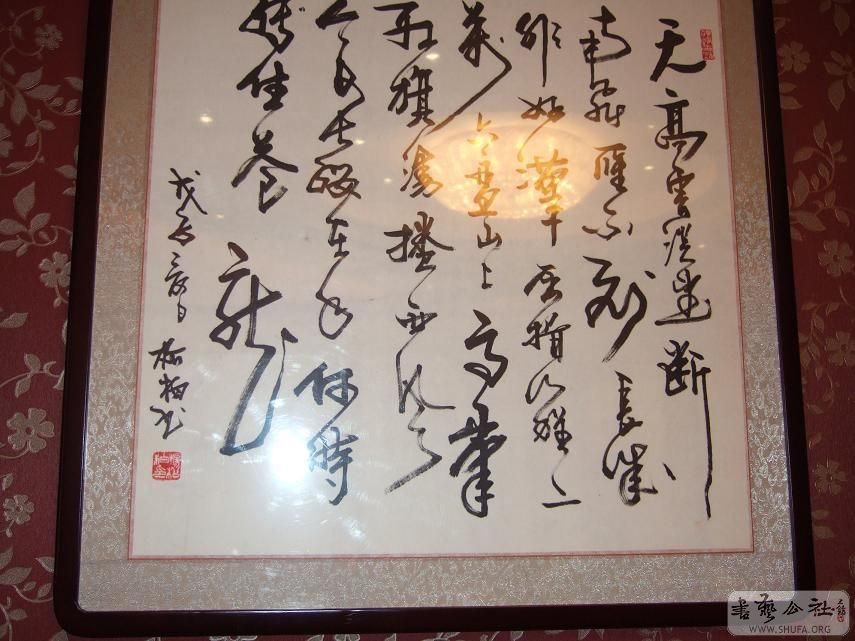 天高雲淡望断
南飛雁不到長城
非好漢屈指行程二
萬六盤山上高峯
红旗漫捲西风
今日长缨在手何時
缚住苍龍
戊子夏日
書藝公社
WWW.SHUFA.ORG